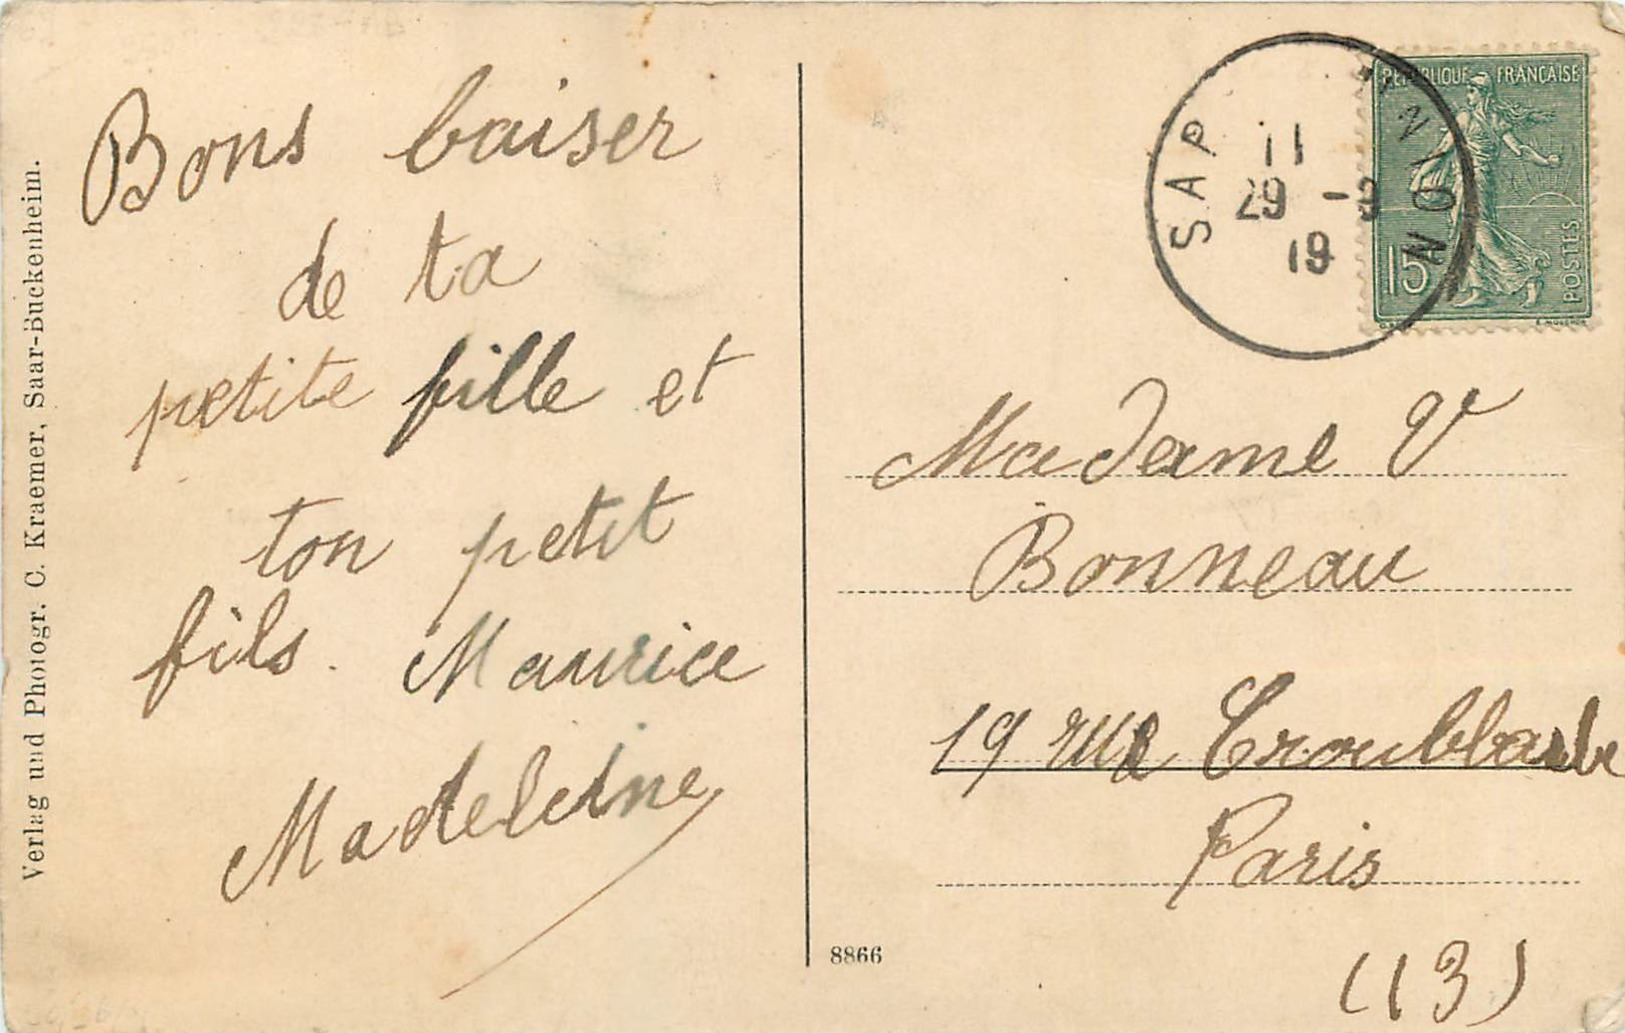 Verlag und Photogr. C. Kraemer, Saar-Buckenheim.
Bons baiser
de ta
petite fille et
ton petit
fils. Maurice
Madeleine
8866
SAP
11
29 -9
19
RÉPUBLIQUE FRANÇAISE
15
POSTES
Madame V
Bonneau
19 rue
Paris
(13)